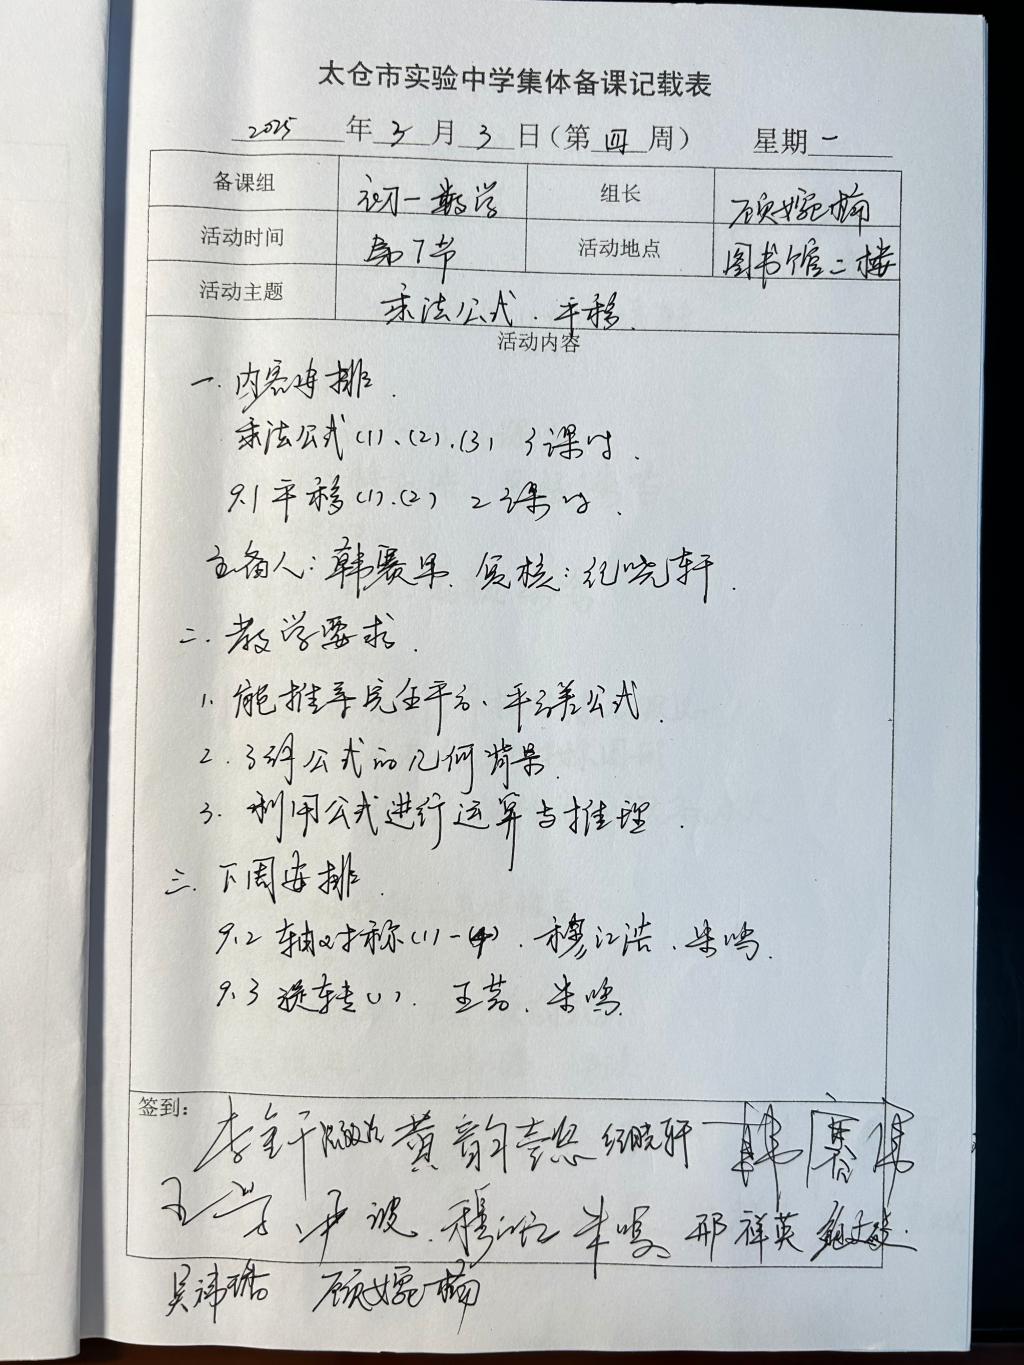 太仓市实验中学集体备课记载表
2025年3月3日(第四周) 星期一
备课组 初一数学 组长 顾婉楠
活动时间 第7节 活动地点 图书馆二楼
活动主题 乘法公式、平移
活动内容
一.内容安排.
乘法公式(1)、(2)、(3) 3课时.
9.1平移(1)、(2) 2课时.
主备人:韩赛 复核:纪晓轩.
二.教学要求.
1.能推导完全平方、平方差公式.
2.了解公式的几何背景.
3.利用公式进行运算与推理.
三.下周安排.
9.2轴对称(1)-(4).穆江浩、朱鸣.
9.3旋转(1).王芸、朱鸣.
签到:
李 黄韵 纪晓轩 韩赛
王 尹波 穆江浩 朱鸣 邢祥英
吴 顾婉楠